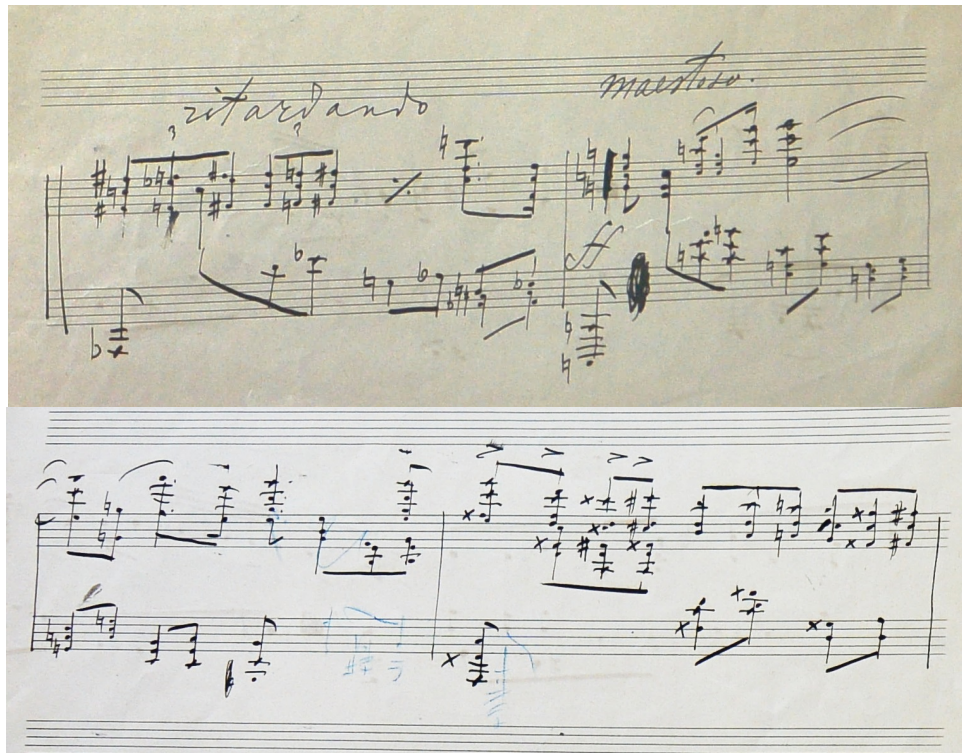 ritardando
maestoso.
3 3
ff